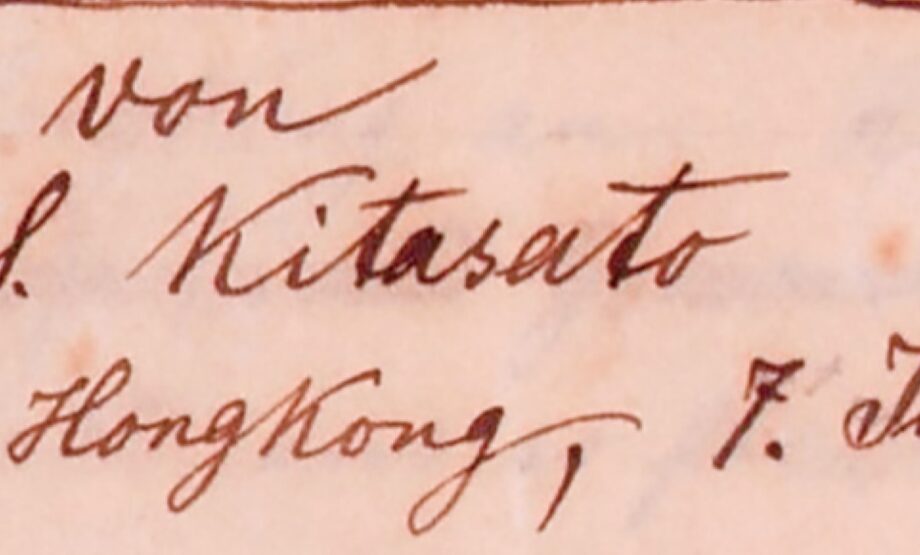 von
S. Kitasato
HongKong, 7.